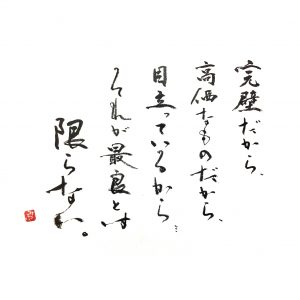 完璧だから、
高価なものだから、
目立っているから…
それが最良とは
限らない。